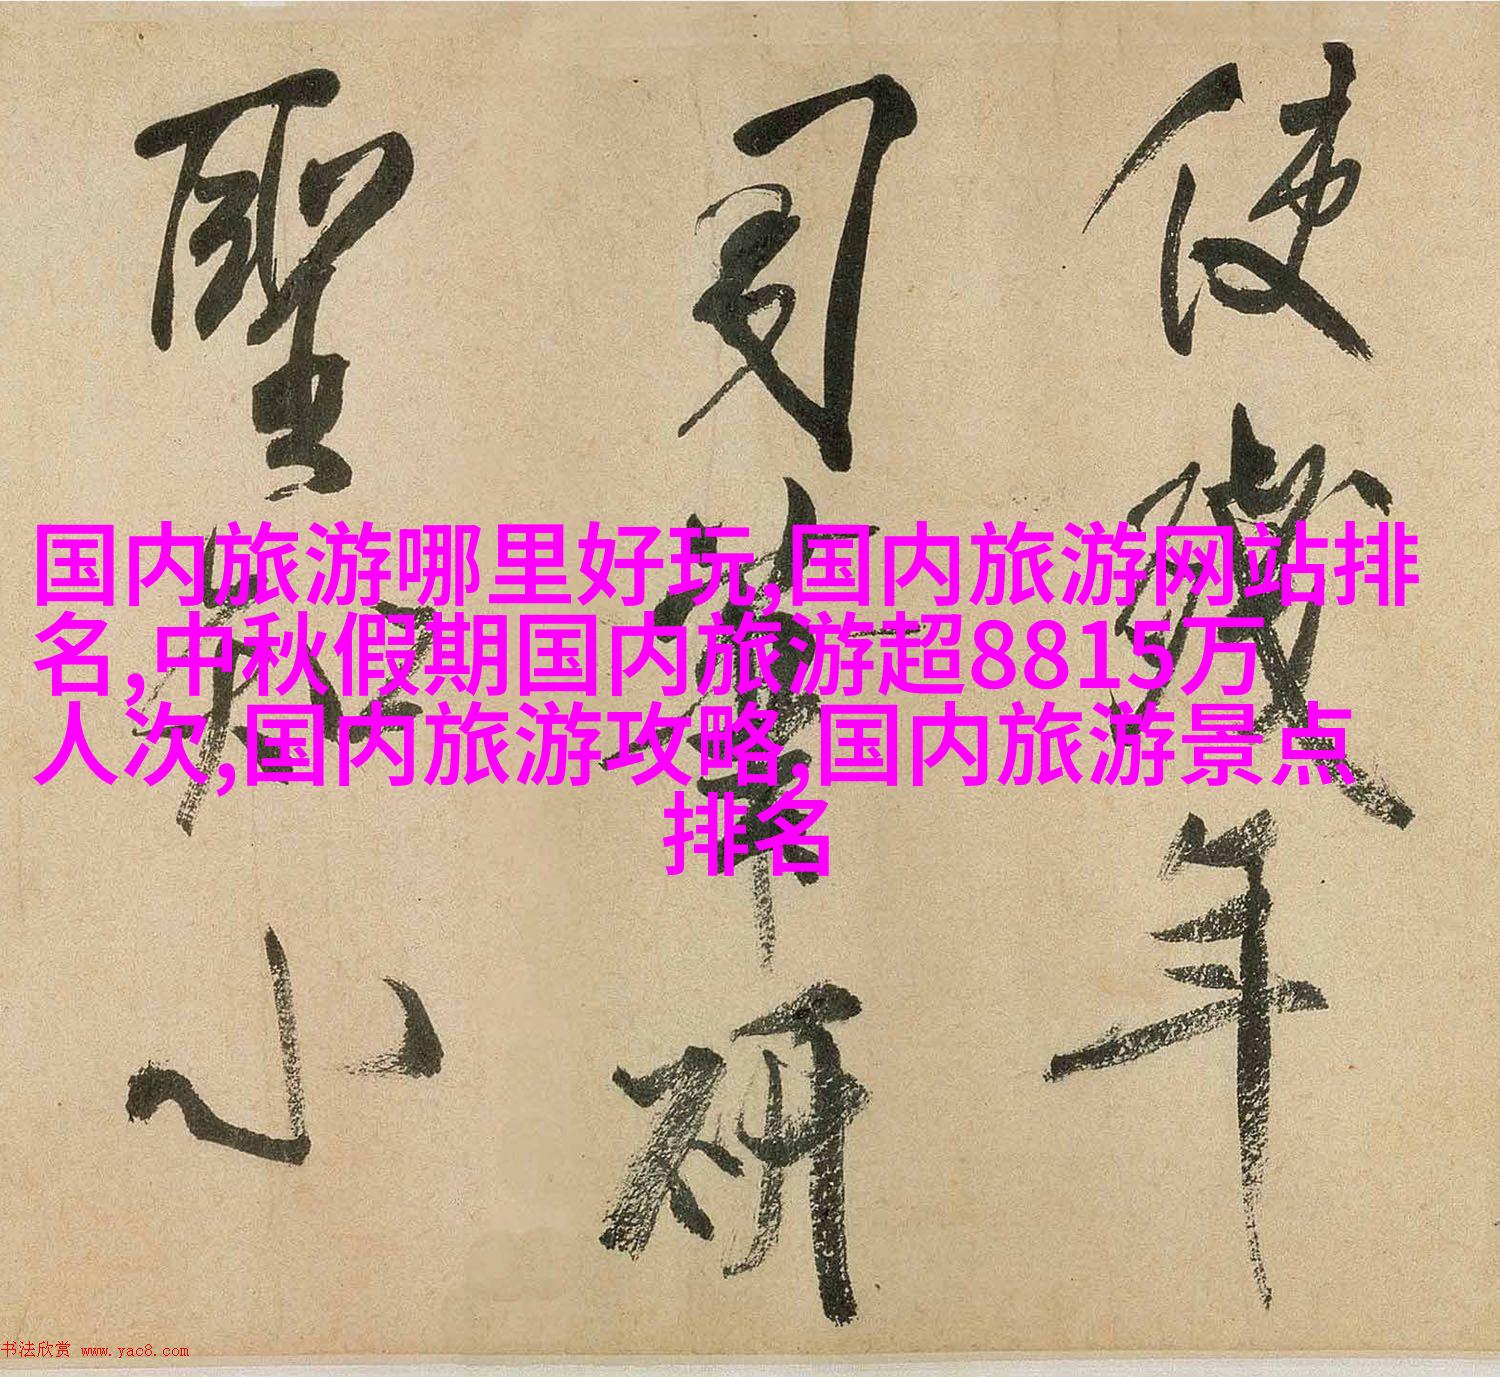 使幾年
司封華研
聖知小
国内旅游哪里好玩,国内旅游网站排
名,中秋假期国内旅游超8815万
人次,国内旅游攻略,国内旅游景点
排名
书法欣赏 www.yac8.com